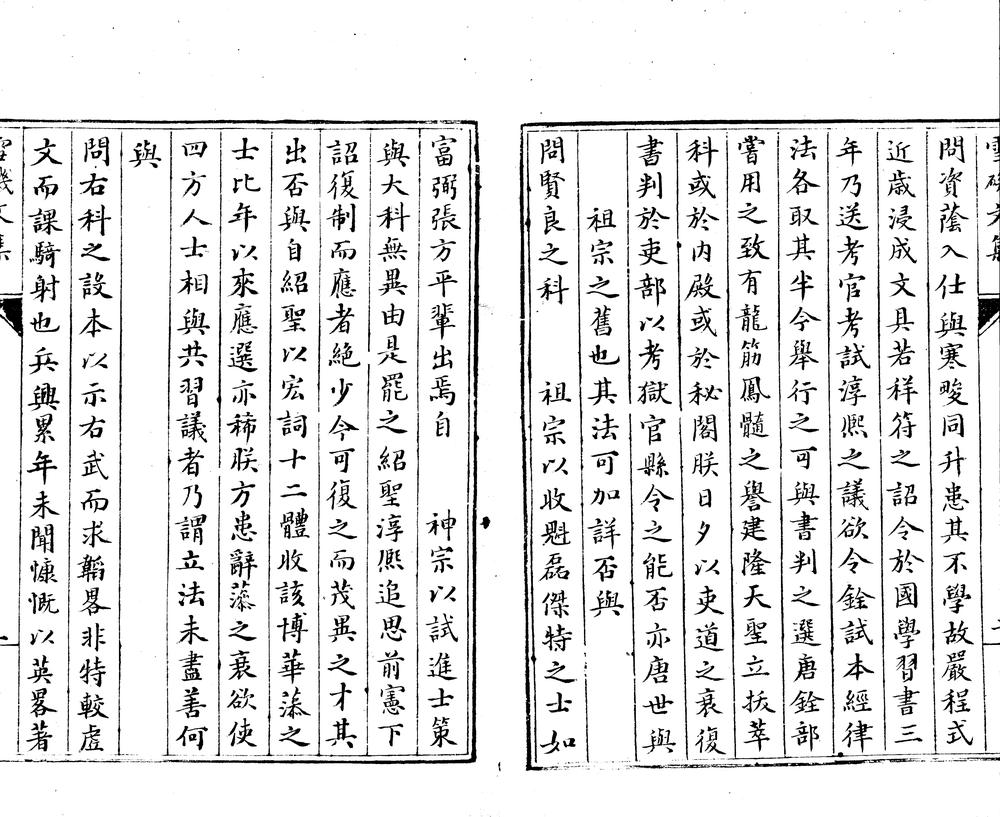 問資蔭入仕與寒畯同升患其不學故嚴程式
近歲浸成文具若祥符之詔令於國學習書三
年乃送考官考試淳熈之議欲令銓試本經律
法各取其半今舉行之可與書判之選唐銓部
嘗用之致有龍筋鳳髓之譽建隆天聖立拔萃
科或於内殿或於秘閣朕日夕以吏道之衰復
書判於吏部以考獄官縣令之能否亦唐世與
祖宗之舊也其法可加詳否與
問賢良之科　祖宗以收魁磊傑特之士如
富弼張方平輩出焉自　神宗以試進士策
與大科無異由是罷之紹聖淳熈追思前憲下
詔復制而應者絶少今可復之而茂異之才其
出否與自紹聖以宏詞十二體收該博華藻之
士比年以來應選亦稀朕方患辭藻之衰欲使
四方人士相與共習議者乃謂立法未盡善何
與
問右科之設本以示右武而求韜畧非特較虗
文而課騎射也兵興累年未聞慷慨以英畧著